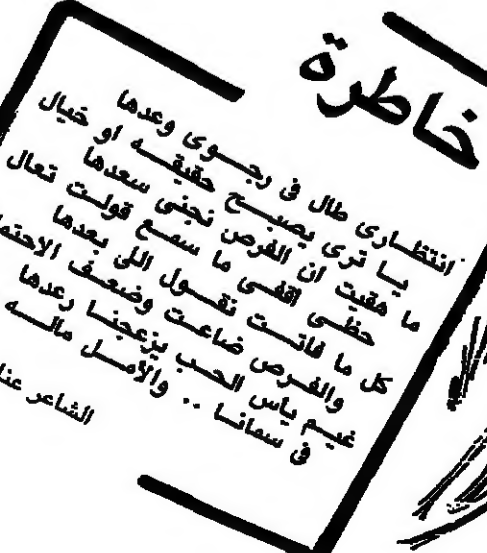 خاطرة
انتظارى طال فى رجوى وعدها
يا ترى يصبح حقيقه او خيال
ما هقيت ان الفرص نجنى سعدها
حظى اقفى ما سمع قولت تعال
كل ما فاتت نقول اللي بعدها
والفرص ضاعت وضعف
غيم ياس الحب يزعجنا رعدها
فى سمانا .. والأمل ماله
الشاعر